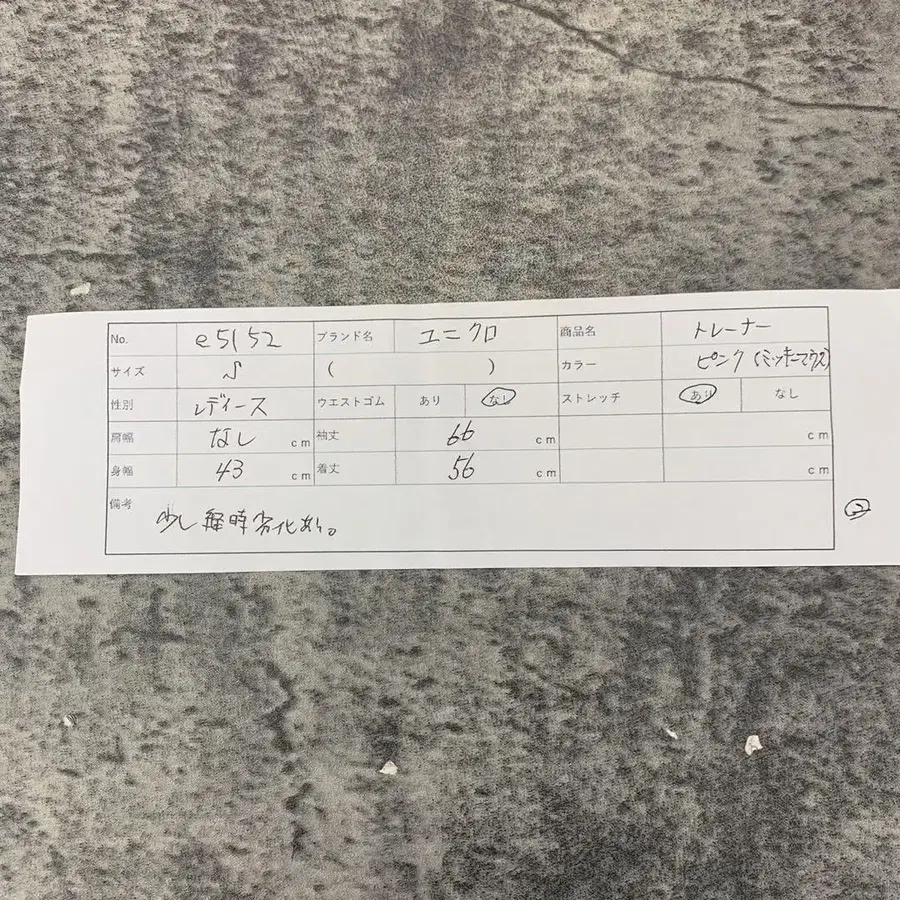 No. e5152 ブランド名 ユニクロ 商品名 トレーナー
サイズ S ( ) カラー ピンク(ミッキーマウス)
性別 レディース ウエストゴム あり なし ストレッチ あり なし
肩幅 なし cm 袖丈 66 cm cm
身幅 43 cm 着丈 56 cm cm
備考
少し経時劣化あり。
②